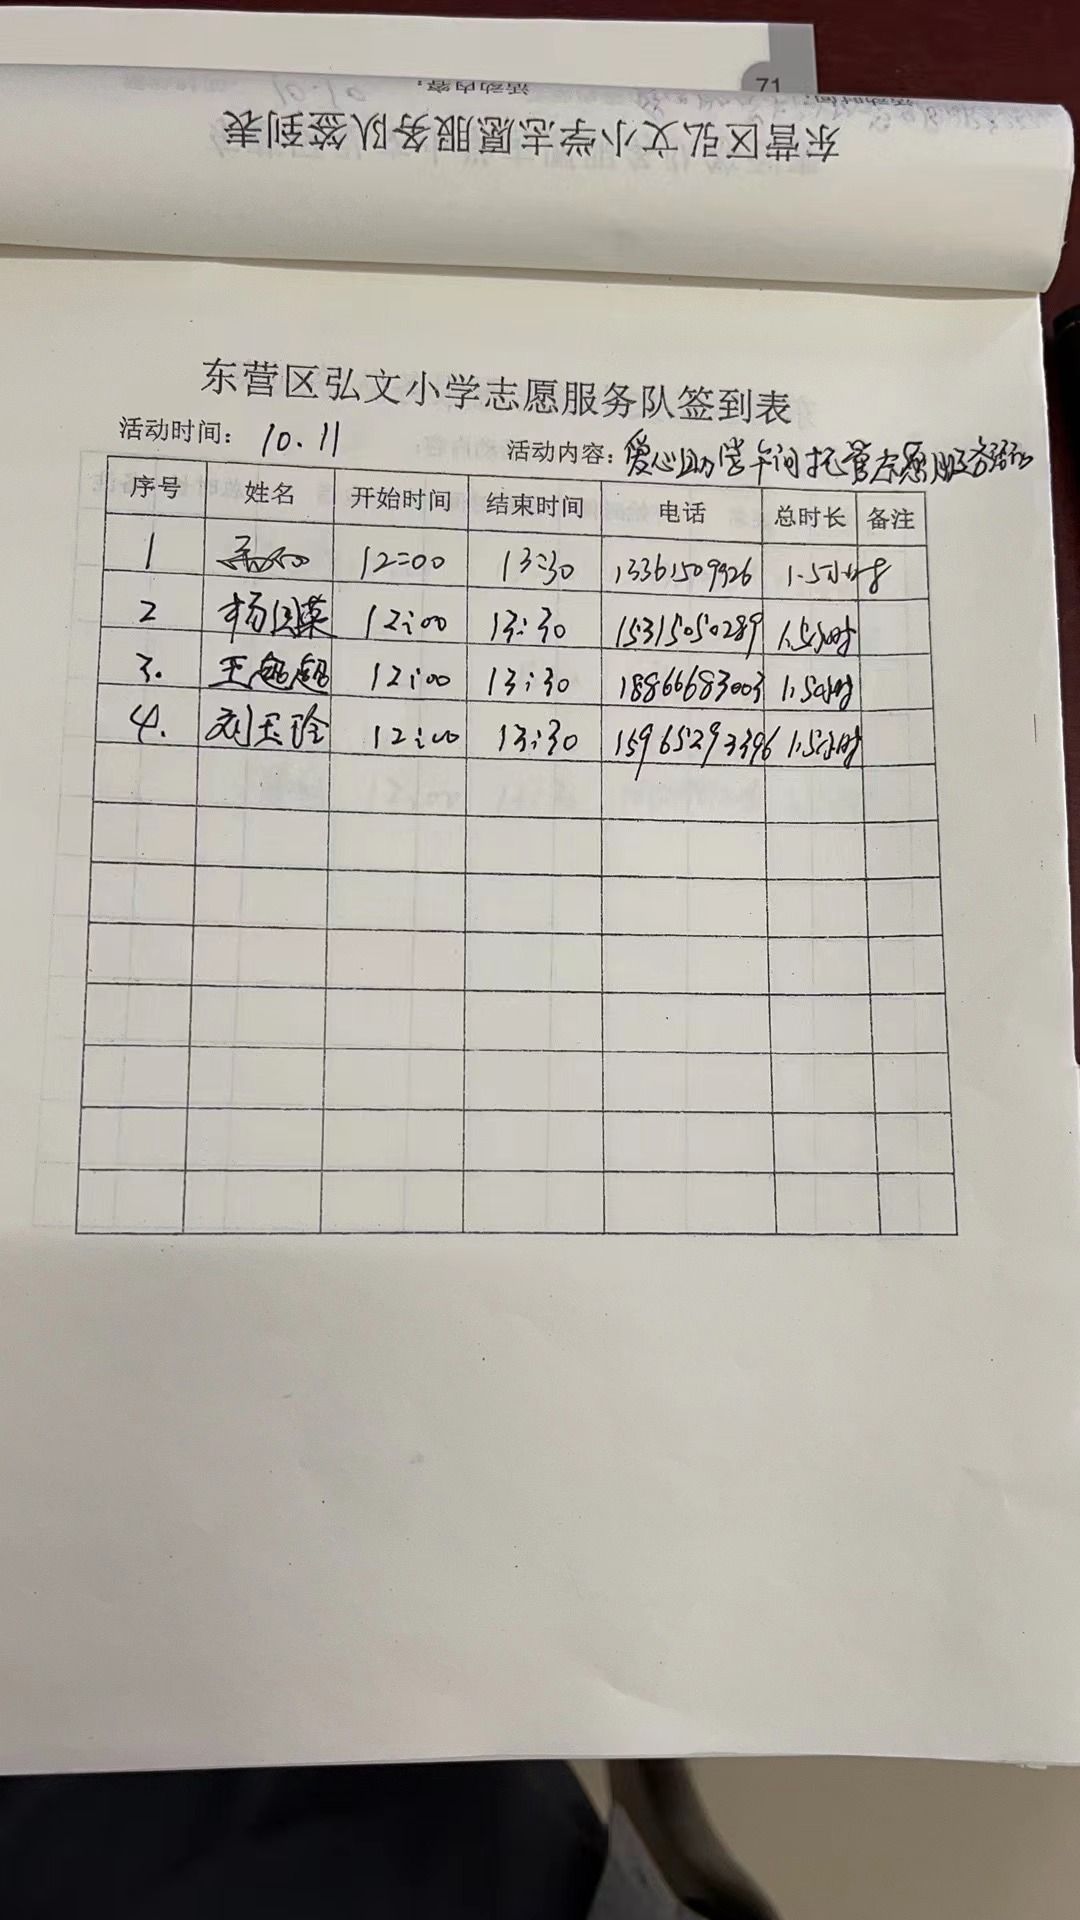 71
东营区弘文小学志愿服务队签到表
东营区弘文小学志愿服务队签到表
活动时间: 10.11 活动内容: 爱心助学午间托管志愿服务活动
序号 姓名 开始时间 结束时间 电话 总时长 备注
1 12:00 13:30 13361509926 1.5小时
2 杨国英 12:00 13:30 15315050289 1.5小时
3. 王超超 12:00 13:30 18866683003 1.5小时
4. 刘玉玲 12:00 13:30 15965293396 1.5小时